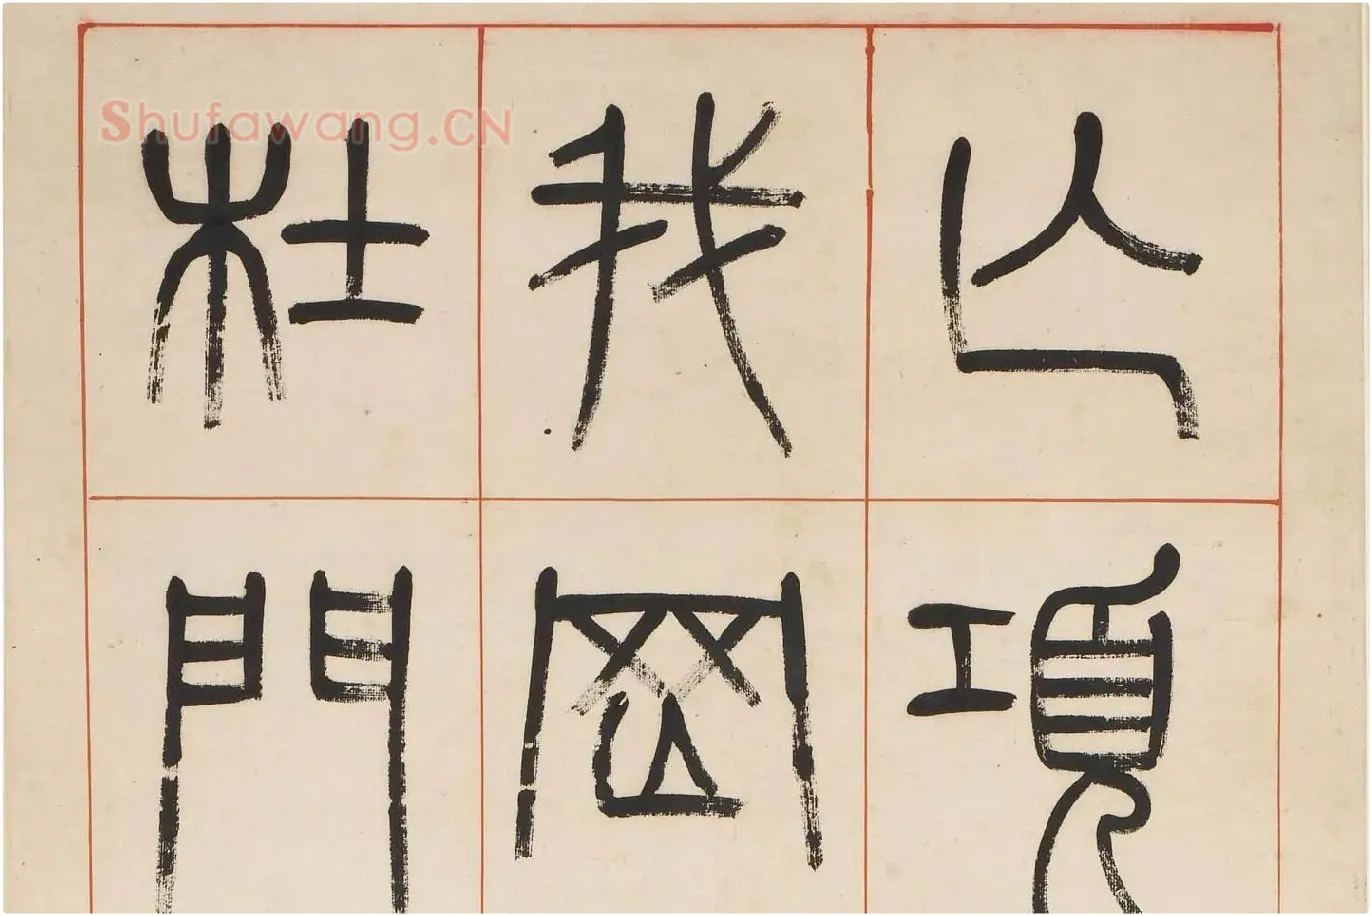 亡項
我罔
杜門
Shufawang.CN